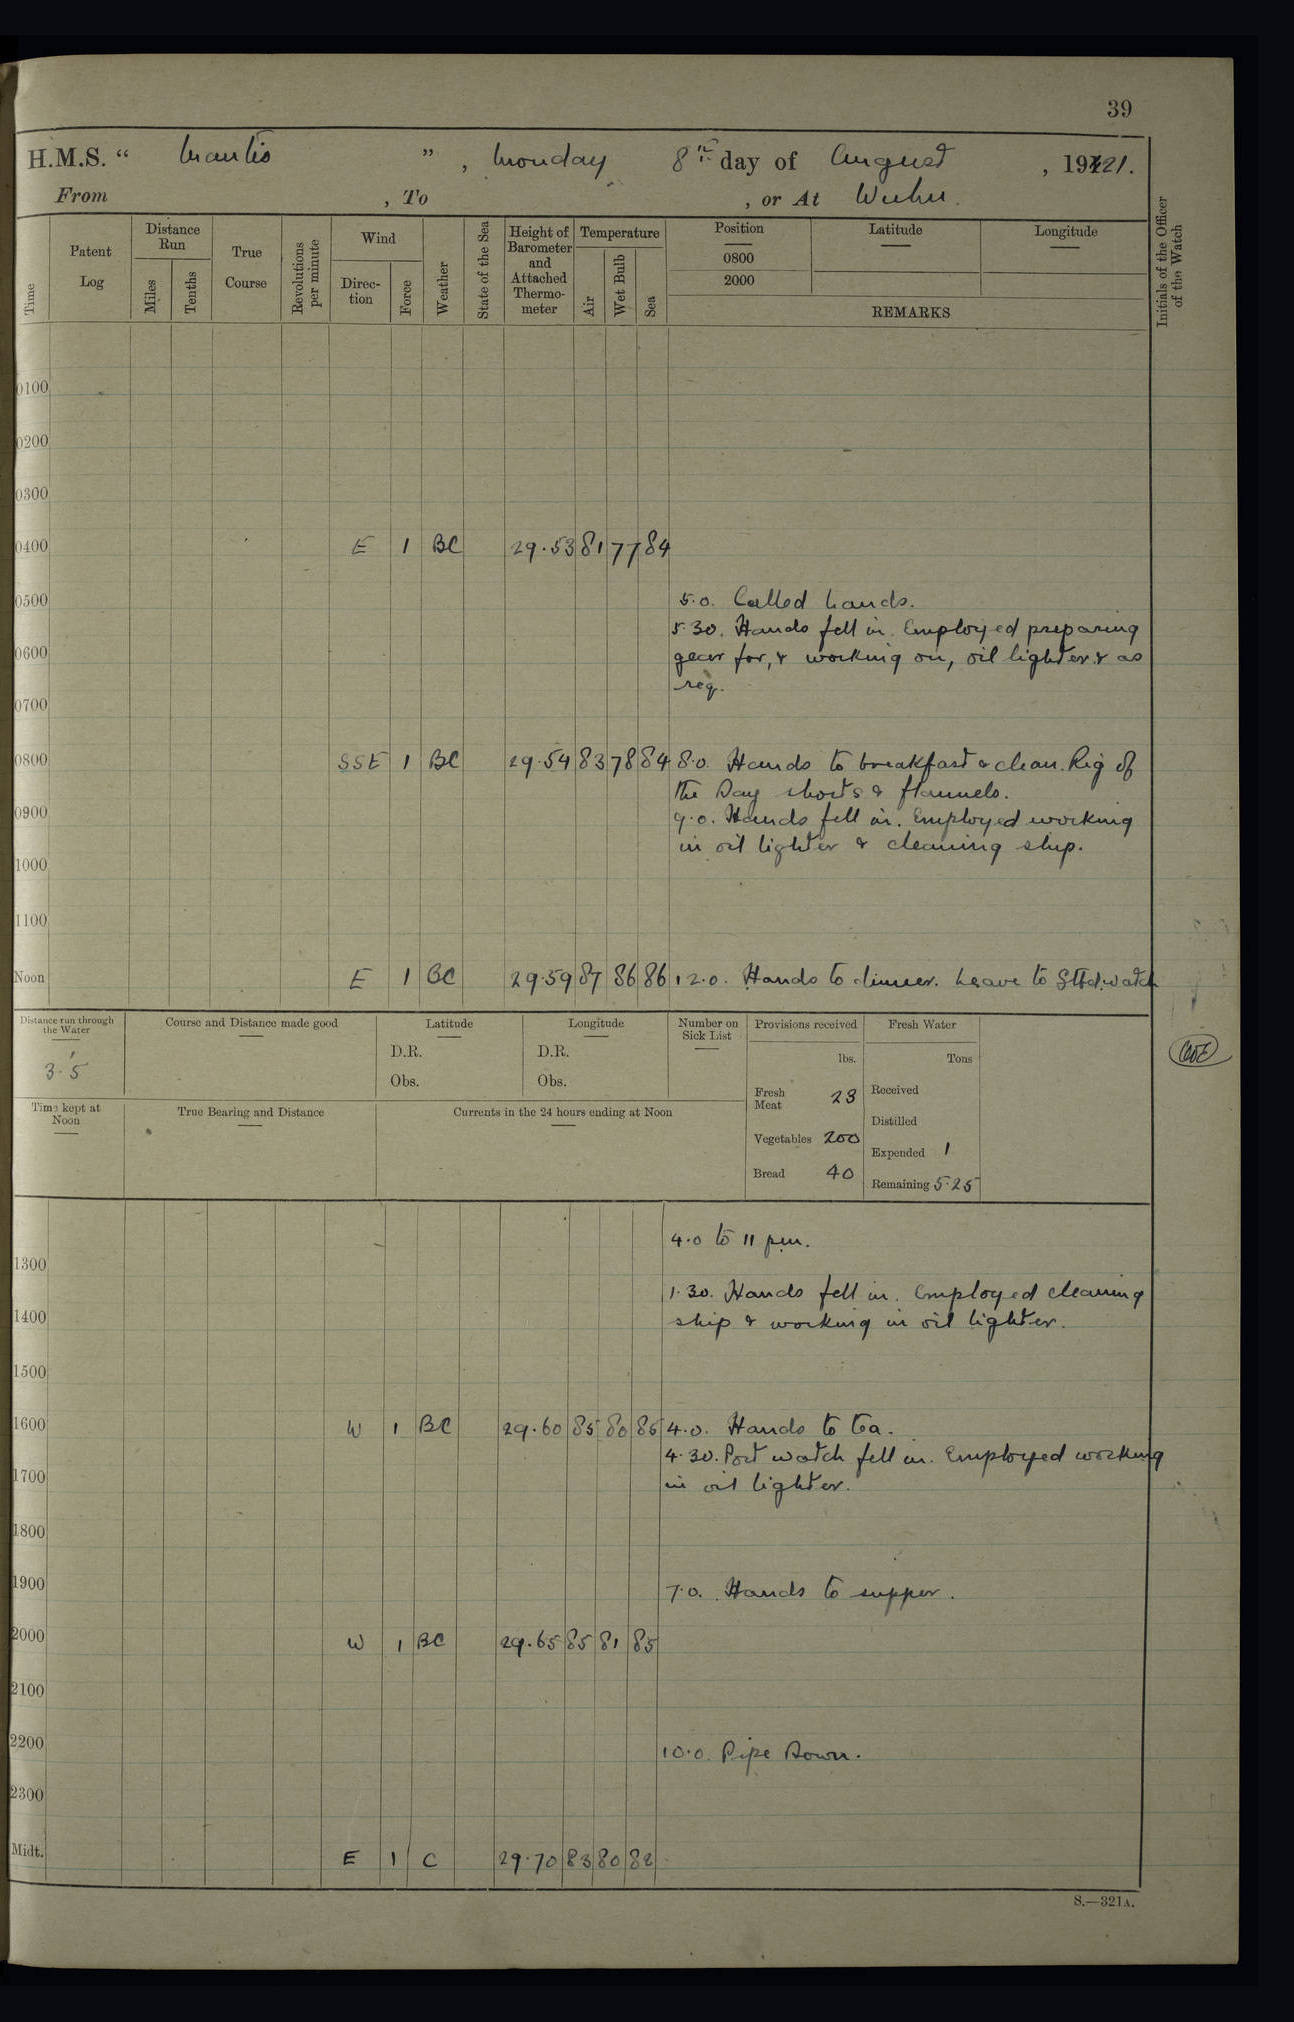 39
H.M.S. “ Mantis ” , Monday 8th day of August , 1921.
From , To , or At Wuhu.
Time
Patent Log
Distance Run
Miles
Tenths
True Course
Revolutions per minute
Wind
Direc-tion
Force
Weather
State of the Sea
Height of Barometer and Attached Thermo-meter
Temperature
Air
Wet Bulb
Sea
Position
0800
2000
Latitude
Longitude
REMARKS
Initials of the Officer of the Watch
0100
0200
0300
0400 E 1 BC 29.53 81 77 84
0500 5.0. Called hands.
5.30. Hands fell in. Employed preparing
0600 gear for, & working on, oil lighter & as
req.
0700
0800 SSE 1 BC 29.54 83 78 84 8.0. Hands to breakfast & clean. Rig of
the Day shorts & flannels.
0900 9.0. Hands fell in. Employed working
in oil lighter & cleaning ship.
1000
1100
Noon E 1 BC 29.59 87 86 86 12.0. Hands to dinner. Leave to Stbd. watch
Distance run through the Water
3.5
Course and Distance made good
Latitude
D.R.
Obs.
Longitude
D.R.
Obs.
Number on Sick List
Provisions received
lbs.
Fresh Meat 23
Vegetables 200
Bread 40
Fresh Water
Tons
Received
Distilled
Expended 1
Remaining 5.25
Time kept at Noon
True Bearing and Distance
Currents in the 24 hours ending at Noon
4.0 to 11 pm.
1300
1.30. Hands fell in. Employed cleaning
1400 ship & working in oil lighter.
1500
1600 W 1 BC 29.60 85 80 86 4.0. Hands to tea.
4.30. Port watch fell in. Employed working
1700 in oil lighter.
1800
1900 7.0. Hands to supper.
2000 W 1 BC 29.65 85 81 85
2100
2200 10.0. Pipe Down.
2300
Midt. E 1 C 29.70 83 80 82
S.—321A.